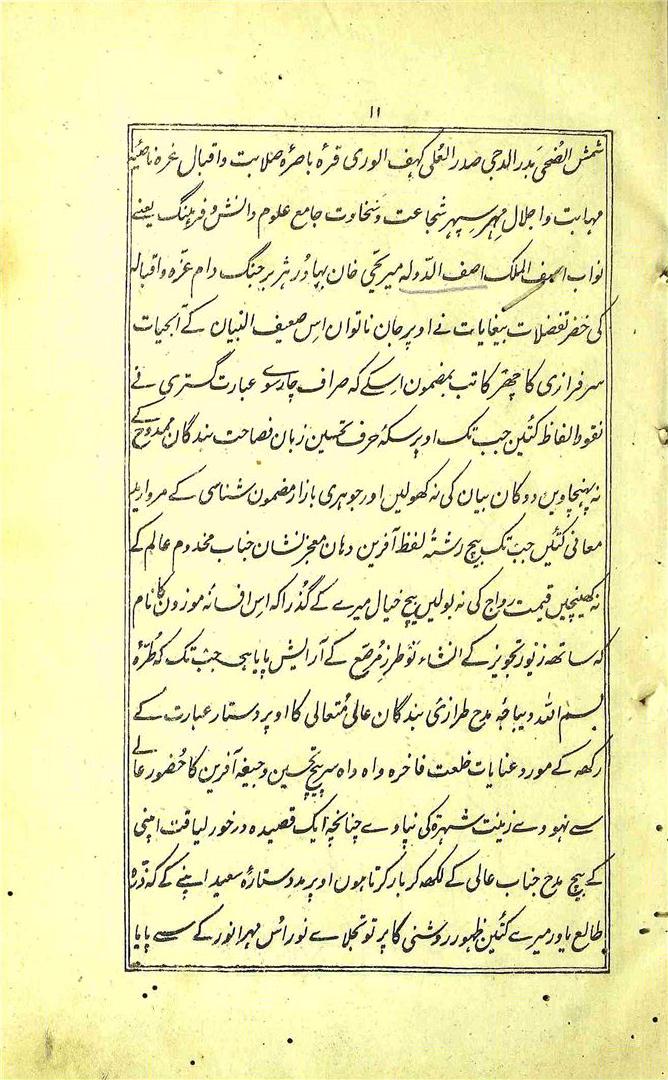 ۱۱
شمس الضحیٰ بدر الدجی صدر العُلی کہف الوری قرۂ باصرۂ صلابت و اقبال غرۂ ناصیہ
مہابت و اجلال مِہرِ سپہر شجاعت و سخاوت جامع علوم دانش و فرہنگ یعنے
نواب آصف الملک آصف الدّولہ میر یحییٰ خان بہادُر ہژبر جنگ دام عزّہ و اقبالہ
کی خضر تفضلات بیغایات نے اوپر جان ناتوان اس ضعیف البنیان کے آبحیات
سرفرازی کا چھڑکا تب بمضمون اسکے کہ صراف چارسوے عبارت گستری نے
نقود الفاظ کتئین جب تک اوپر سکۂ حرف تحسین زبان فصاحت بندگان ممدوح کے
نہ پہنچاوین دوکان بیان کی نہ کھولین اور جوہری بازار مضمون شناسی کے مروارید
معانی کتئین جب تک بیچ رشتۂ لفظ آفرین دہان معجز نشان جناب مخدوم عالم کے
نہ کھینچین قیمت رواج کی نہ بولین بیچ خیال میرے کے گذرا کہ اس افسانۂ موزون کا نام
کہ ساتھ زیور تجویز کے انشاء نوطرز مُرصّع کے آرایش پایا ہی جب تک کہ طُرّۂ
بسم اللہ دیباچۂ مدح طرازئ بندگان عالی مُتعالی کا اوپر دستار عبارت کے
رکھہ کے مورد عنایات خلعت فاخرہ واہ واہ سرپیچ تحسین و جیغہ آفرین کا حُضور عالے
سے نہووے زینت شہرۃ کی نپاوے چنانچہ ایک قصیدہ درخور لیاقت اپنی
کے بیچ مدح جناب عالی کے لکھہ کر بار کرتا ہون اوپر مدد ستارۂ سعید اپنے کے کہ ذرّہ
طالع یاور میرے کتئین ظہور روشنی کا پرتو تجلاے نور اُس مہر انور کے سے پایا